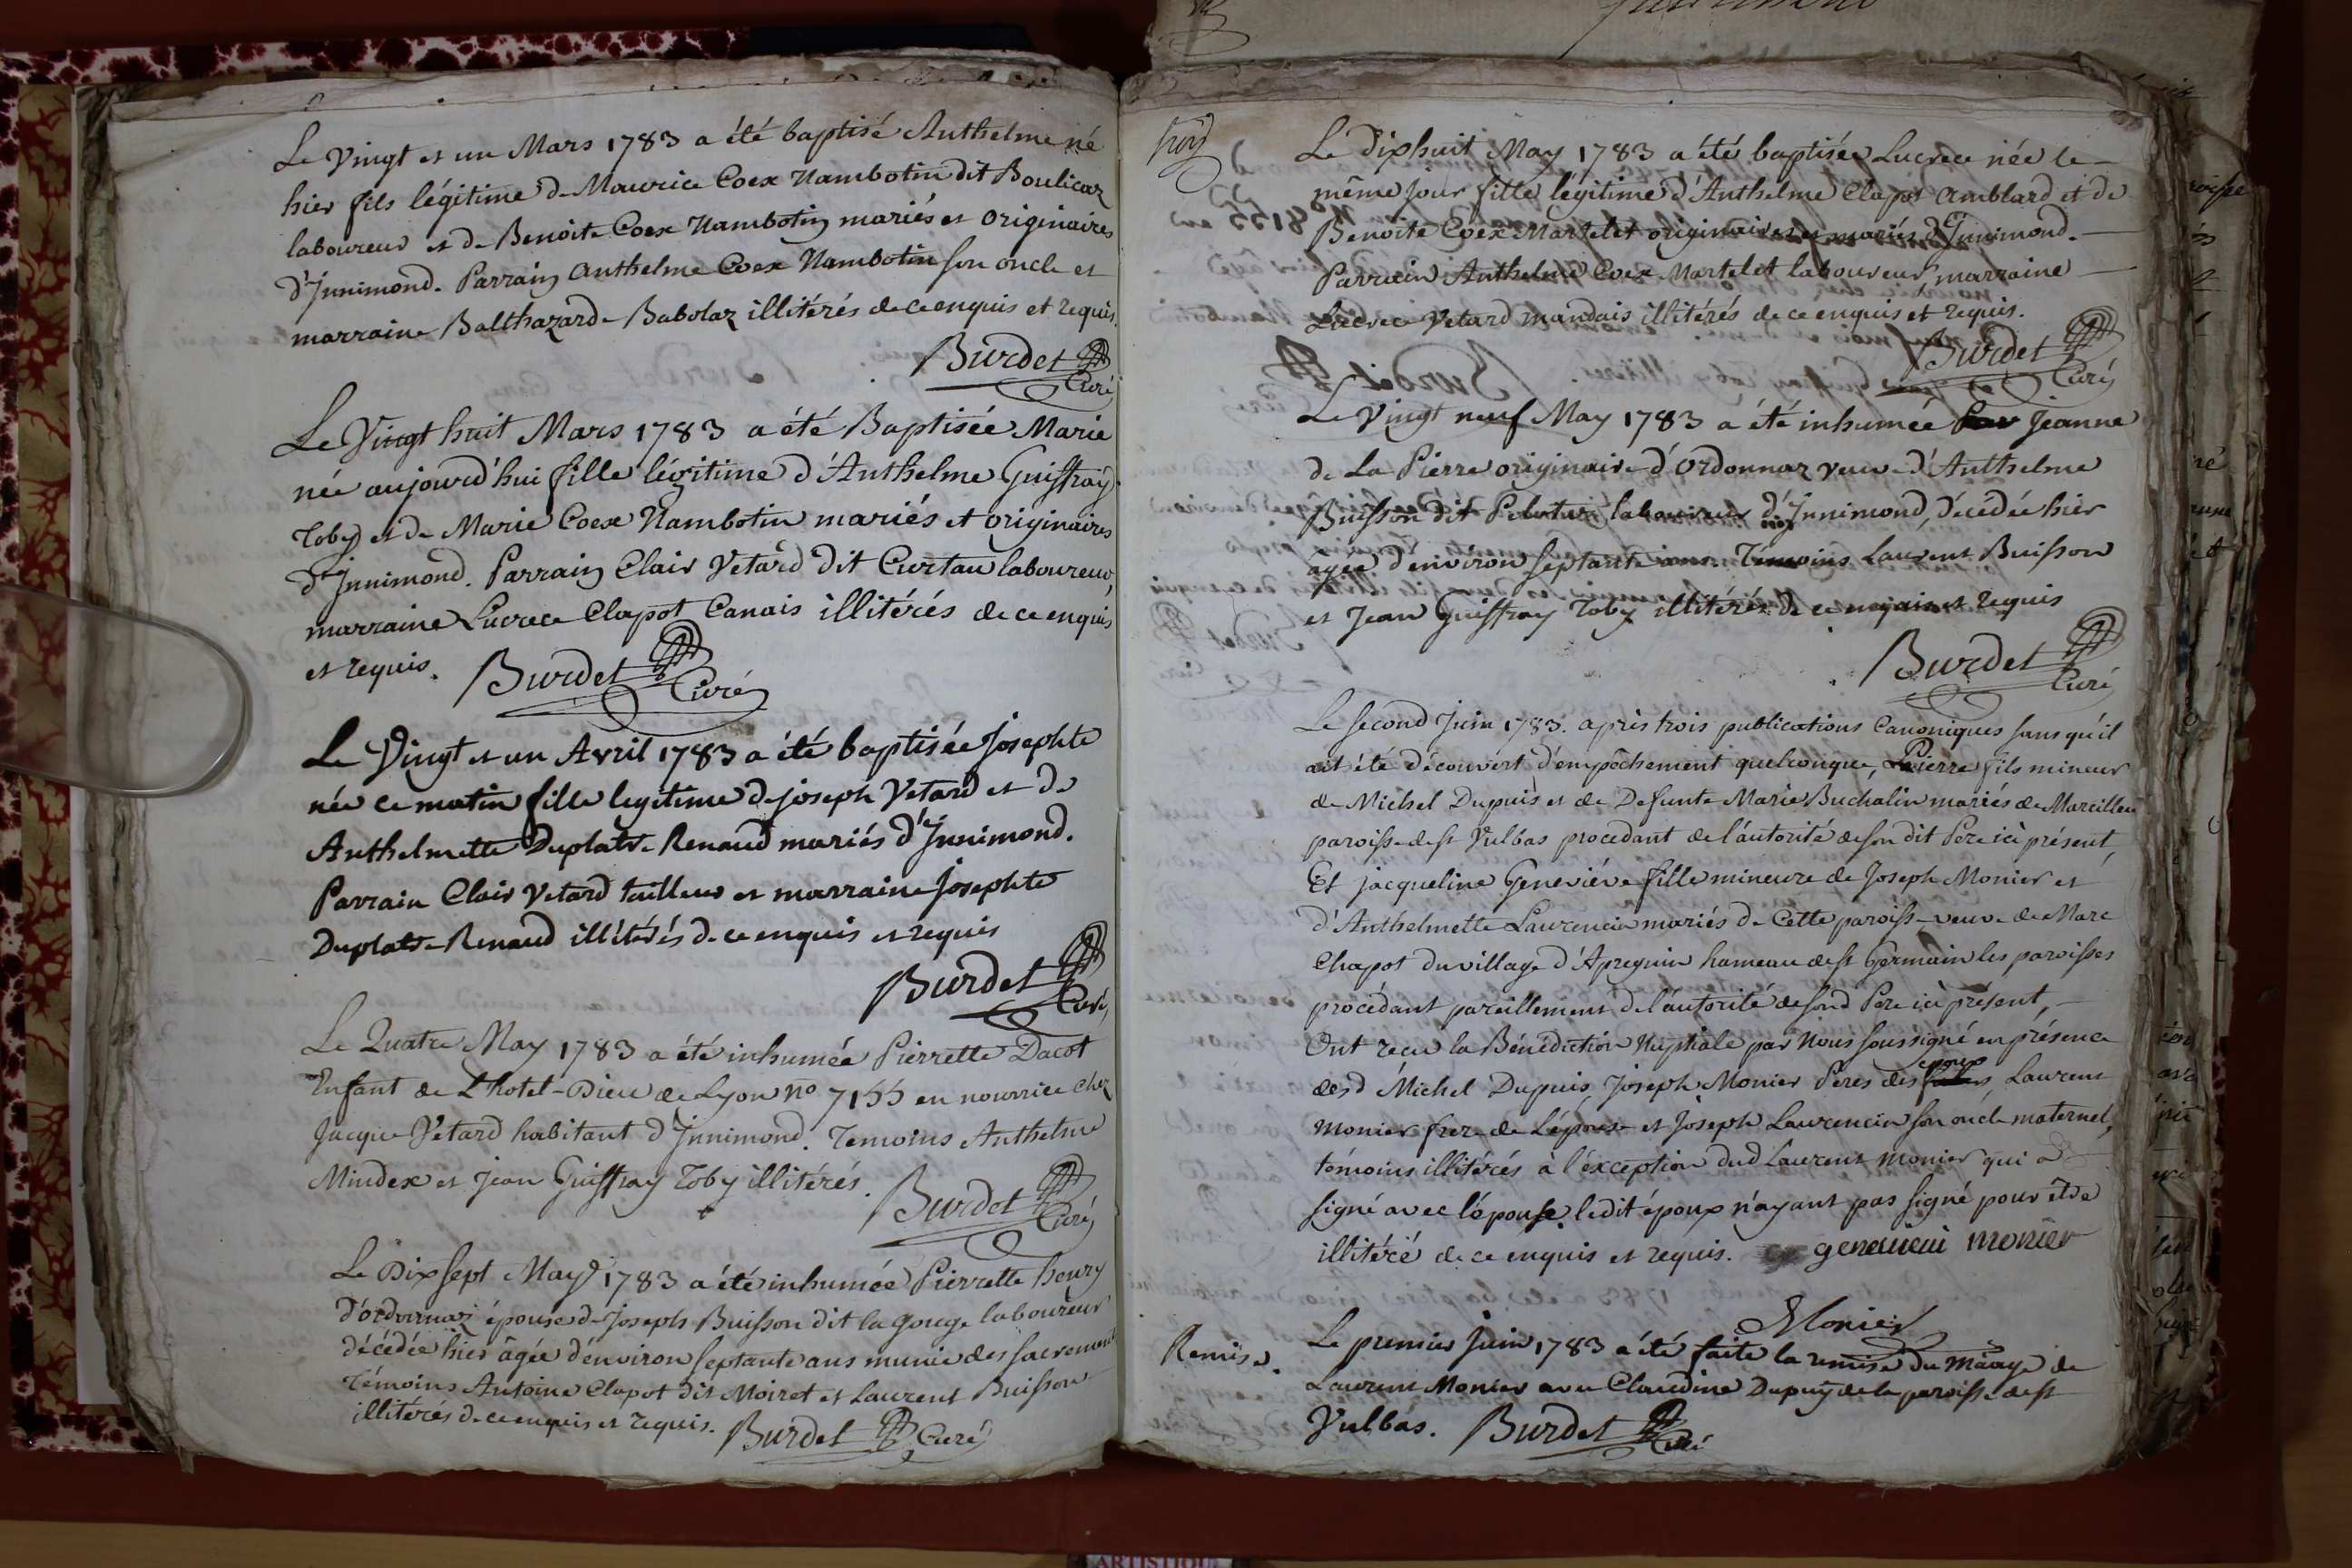 Le Vingt et un Mars 1783 a été baptisé Anthelme né
hier fils légitime de Maurice Coex Nambotin dit Boulicaz
laboureur et de Benoite Coex Nambotin mariés et originaires
d'Innimond. Parrain Anthelme Coex Nambotin son oncle et
marraine Balthazarde Babolaz illitérés de ce enquis et requis.
Burdet
Curé
Le Vingt huit Mars 1783 a été Baptisée Marie
née aujourd'hui fille légitime d'Anthelme Guiffray
Toby et de Marie Coex Nambotin mariés et originaires
d'Innimond. Parrain Clair Vetard dit Curtau laboureur,
marraine Lucrece Clapot Canais illitérés de ce enquis
et requis. Burdet
Curé
Le Vingt et un Avril 1783 a été baptisée Josephte
née ce matin fille legitime de joseph Vetard et de
Anthelmette Duplatre Renaud mariés d'Innimond.
Parrain Clair Vetard tailleur et marraine Josephte
Duplatre Renaud illitérés de ce enquis et requis
Burdet
Curé
Le Quatre May 1783 a été inhumée Pierrette Dacot
Enfant de L'hotel-Dieu de Lyon no 7155 en nourrice chez
Jacque Vetard habitant d'Innimond. Temoins Anthelme
Mindex et Jean Guiffray Toby illitérés.
Burdet
Curé
Le Dix sept May 1783 a été inhumée Pierrette henry
d'ordonnaz épouse de Joseph Buisson dit la gouge laboureur
décédée hier âgée d'environ septante ans munie des sacremens
Témoins Antoine Clapot dit Moiret et Laurent Buisson
illitérés de ce enquis et requis. Burdet Curé
troy
Le dixhuit May 1783 a été baptisée Lucrece née le
même jour fille légitime d'Anthelme Clapot Amblard et de
Benoite Coex Martelet originaires et mariés d'Innimond.
Parrain Anthelme Coex Martelet laboureur, marraine
Lucrece Vetard mandais illitérés de ce enquis et requis.
Burdet
Curé
Le Vingt neuf May 1783 a été inhumée Jeanne
de La Pierre originaire d'Ordonnaz veuve d'Anthelme
Buisson dit laboureur d'Innimond, décédée hier
agée d'environ septante ans. Temoins Laurent Buisson
et Jean Guiffray Toby illitérés de ce enquis et requis
Burdet
Curé
Le second Juin 1783. après trois publications Canoniques sans qu'il
ait été découvert d'empêchement quelconque, Pierre fils mineur
de Michel Dupuis et de Defunte Marie Buchalin mariés de Marcilleu
paroisse de st Vulbas procedant de l'autorité de son dit Pere ici présent,
Et jacqueline Geneviéve fille mineure de Joseph Monier et
d'Anthelmette Laurencin mariés de Cette paroisse veuve de Marc
Chapot du village d'Apreguin hameau de st Germain les paroisses
procédant pareillement de l'autorité de sond Pere ici présent,
Ont reçu la Bénédiction Nuptiale par Nous soussigné en présence
desd Michel Dupuis, Joseph Monier Peres des epoux, Laurent
Monier frere de L'épouse et Joseph Laurencin son oncle maternel,
témoins illitérés à l'éxception dud Laurent Monier qui a
signé avec l'épouse. ledit époux n'ayant pas signé pour être
illitéré de ce enquis et requis. genevieui monier
Monier
Remise. Le premier Juin 1783 a été faite la remise du mariage de
Laurent Monier avec Claudine Dupuy de la paroisse de st
Vulbas. Burdet
Curé
ARTISTIQUE